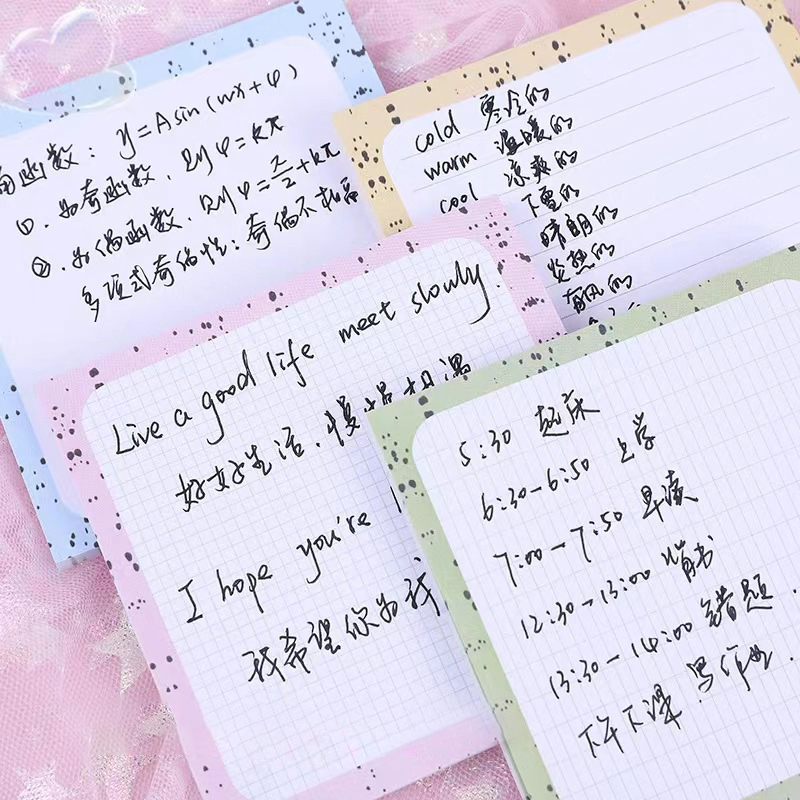 角函数: y=Asin(wx+φ)
①.为奇函数,则φ=kπ
②.为偶函数,则φ=π/2+kπ
多项式奇偶性:奇偶不抵高
cold 寒冷的
warm 温暖的
cool 凉爽的
下雪的
晴朗的
炎热的
有风的
Live a good life meet slowly.
好好生活、慢慢相遇
I hope you're
我希望你为我
5:30 起床
6:30-6:50 上学
7:00-7:50 早读
12:30-13:00 背书
13:30-14:00 错题.
下午下课 写作业.